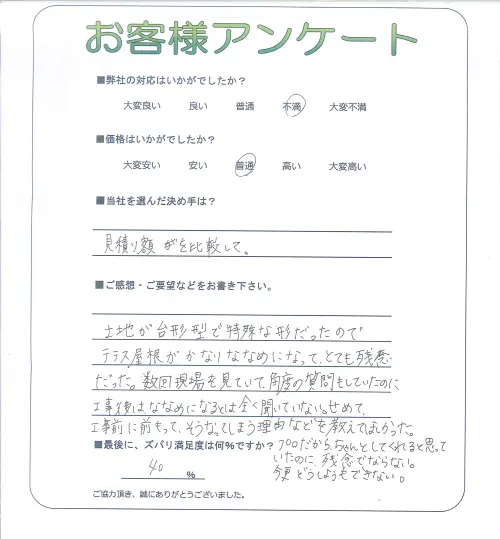 お客様アンケート
■弊社の対応はいかがでしたか？
大変良い 良い 普通 不満 大変不満
■価格はいかがでしたか？
大変安い 安い 普通 高い 大変高い
■当社を選んだ決め手は？
見積り額を比較して。
■ご感想・ご要望などをお書き下さい。
土地が台形型で特殊な形だったので
テラス屋根がかなりななめになって、とても残念
だった。数回現場を見ていて、角度の質問もしていたのに
工事後はななめになるとは全く聞いていない。せめて、
工事前に前もって、そうなってしまう理由などを教えてほしかった。
プロだから、ちゃんとしてくれると思って
いたのに、残念でならない。
今更どうしようもできない。
■最後に、ズバリ満足度は何％ですか？
40 ％
ご協力頂き、誠にありがとうございました。